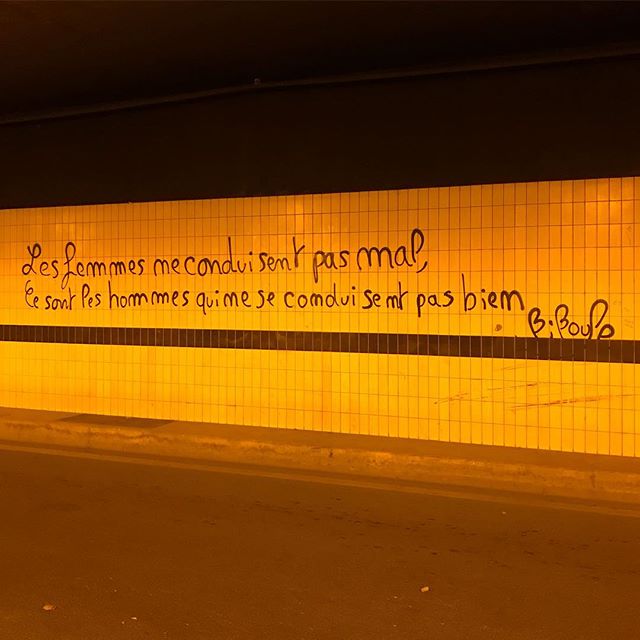 Les femmes ne conduisent pas mal,
Ce sont les hommes qui ne se conduisent pas bien
BiBoule